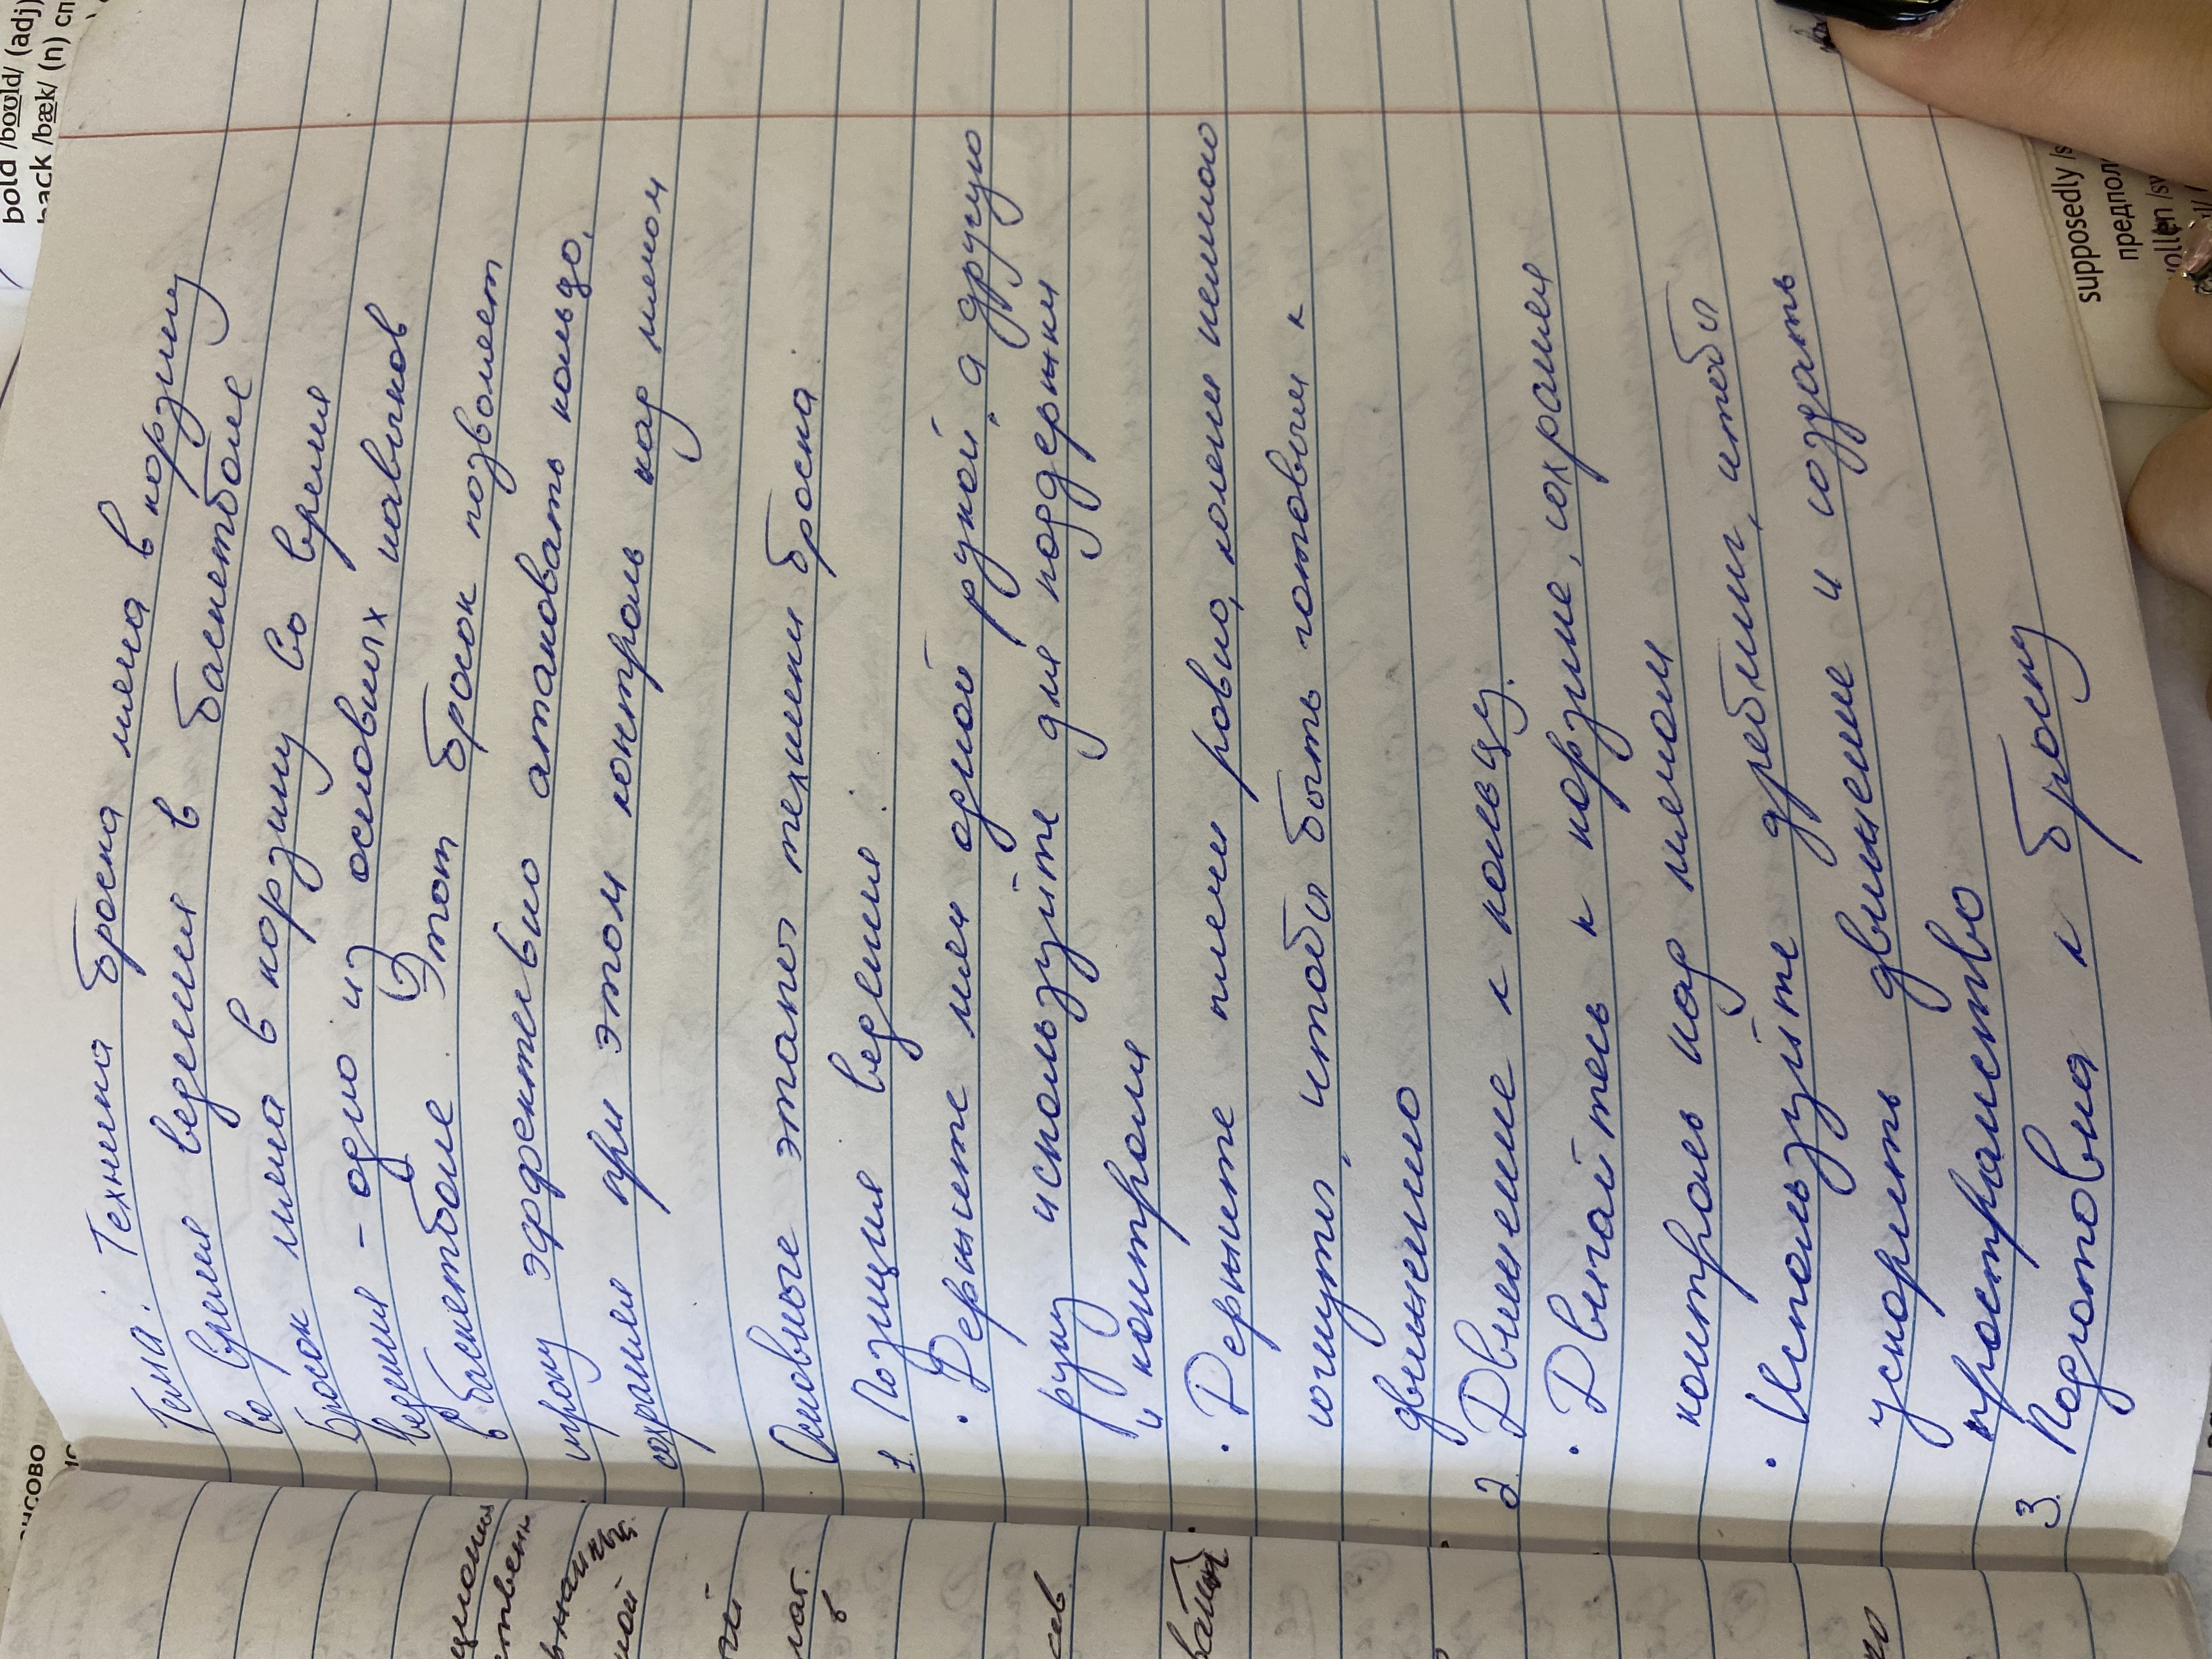 Тема: Техника броска мяча в корзину
во время ведения в баскетболе
Бросок мяча в корзину во время
ведения - одно из основных навыков
в баскетболе. Этот бросок позволяет
игроку эффективно атаковать кольцо,
сохраняя при этом контроль над мячом
Основные этапы техники броска
1. Позиция ведения:
· Держите мяч одной рукой, а другую
руку используйте для поддержки
и контроля
· Держите плечи ровно, колени немного
согнуты, чтобы быть готовым к
движению
2. Движение к кольцу.
· Двигайтесь к корзине, сохраняя
контроль над мячом
· Используйте дреблинг, чтобы
ускорить движение и создать
пространство
3. Подготовка к броску
bold /bould/ (adj)
back /bæk/ (n) сп
supposedly /s
предпол
ollen /sv
нсово